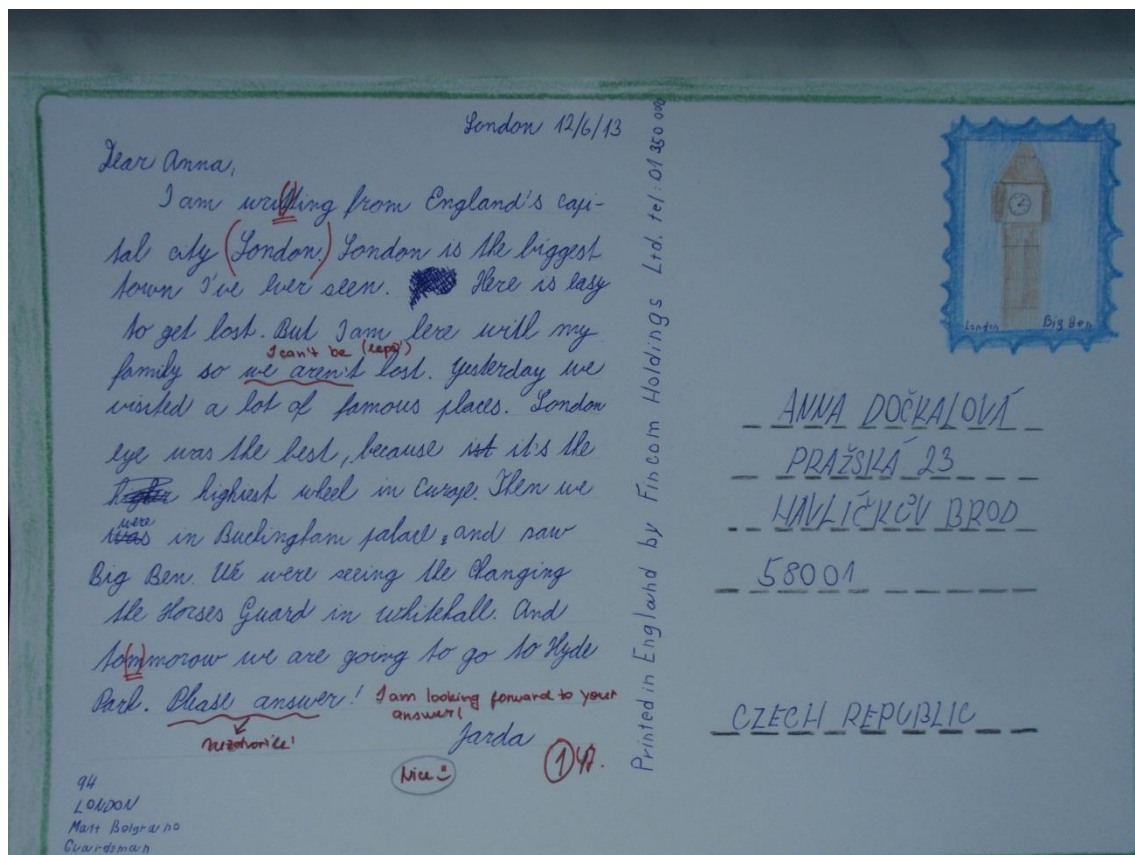 London 12/6/13
Dear Anna,
I am writting from England's capi-
tal city (London.) London is the biggest
town I've ever seen. Here is easy
to get lost. But I am here with my
I can't be (lepší)
family so we aren't lost. Yesterday we
visited a lot of famous places. London
eye was the best, because ist it's the
highest wheel in Europe. Then we
were
was in Buckingham palace, and saw
Big Ben. We were seeing the Changing
the Horses Guard in Whitehall. And
tommorow we are going to go to Hyde
Park. Please answer! I am looking forward to your
answer!
nezdvořilé!
Jarda
Nice
1
94
LONDON
Matt Bolgraino
Guardsman
Printed in England by Fincom Holdings Ltd. tel: 01 350 000
London Big Ben
ANNA DOČKALOVÁ
PRAŽSKÁ 23
HAVLÍČKŮV BROD
58001
CZECH REPUBLIC